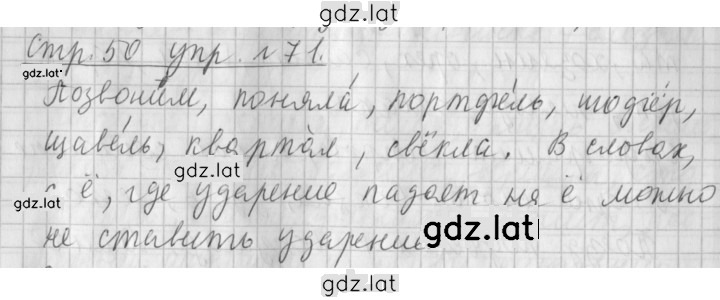 gdz.lat
Стр. 50 упр. №71.
gdz.lat
Позвони́м, поняла́, портфе́ль, шофёр,
щаве́ль, кварта́л, свёкла. В словах,
gdz.lat
с ё, где ударение падает на ё можно
gdz.lat
не ставить ударение
gdz.lat
gdz.lat